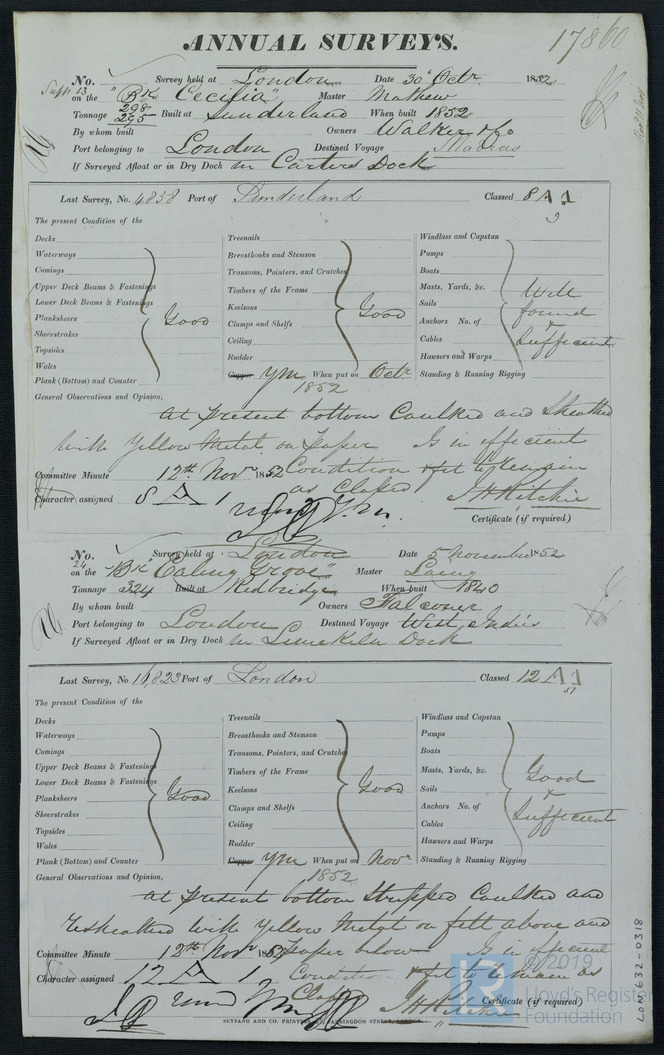 ANNUAL SURVEYS.
17860
No. Survey held at London Date 30 Octr 1852
Supp 13 on the "Bk Cecilia" Master Mathew
Tonnage 298 295 Built at Sunderland When built 1852
By whom built Owners Walker & Co
Port belonging to London Destined Voyage Madras
If Surveyed Afloat or in Dry Dock in Carters Dock
Last Survey, No. 4858 Port of Sunderland Classed 8 A 1
The present Condition of the
Decks Treenails Windlass and Capstan
Waterways Breasthooks and Stemson Pumps
Comings Transoms, Pointers, and Crutches Boats
Upper Deck Beams & Fastenings Timbers of the Frame Masts, Yards, &c. Well
Lower Deck Beams & Fastenings Keelsons Sails found
Planksheers Good Clamps and Shelfs Good Anchors No. of &
Sheerstrakes Ceiling Cables Sufficient
Topsides Rudder Hawsers and Warps
Wales Copper YM When put on Octr 1852 Standing & Running Rigging
Plank (Bottom) and Counter
General Observations and Opinion,
at present bottom Caulked and Sheathed
with Yellow Metal on Paper Is in efficient
Committee Minute 12th Novr 1852 Condition & fit to remain
Character assigned 8 A 1 as Classed J H Ritchie
Certificate (if required)
No. Survey held at London Date 5 November 1852
24 on the "Bk Ealing Grove" Master Laing
Tonnage 324 Built at Redbridge When built 1840
By whom built Owners Falconer
Port belonging to London Destined Voyage West Indies
If Surveyed Afloat or in Dry Dock in Limekiln Dock
Last Survey, No 16,823 Port of London Classed 12 A 1
51
The present Condition of the
Decks Treenails Windlass and Capstan
Waterways Breasthooks and Stemson Pumps
Comings Transoms, Pointers, and Crutches Boats
Upper Deck Beams & Fastenings Timbers of the Frame Masts, Yards, &c. Good
Lower Deck Beams & Fastenings Keelsons Good Sails &
Planksheers Good Clamps and Shelfs Anchors No. of Sufficient
Sheerstrakes Ceiling Cables
Topsides Rudder Hawsers and Warps
Wales Copper YM When put on Novr 1852 Standing & Running Rigging
Plank (Bottom) and Counter
General Observations and Opinion,
at present bottom Stripped Caulked and
resheathed with Yellow Metal on felt above and
Committee Minute 12th Novr 1852 Paper below Is in efficient
Character assigned 12 A 1 Condition & fit to remain as
Classed J H Ritchie Certificate (if required)
SEYFANG AND CO. PRINTERS, 57, FARRINGDON STREET, LONDON.
LON 632-0318
© 2019
Lloyd's Register
Foundation